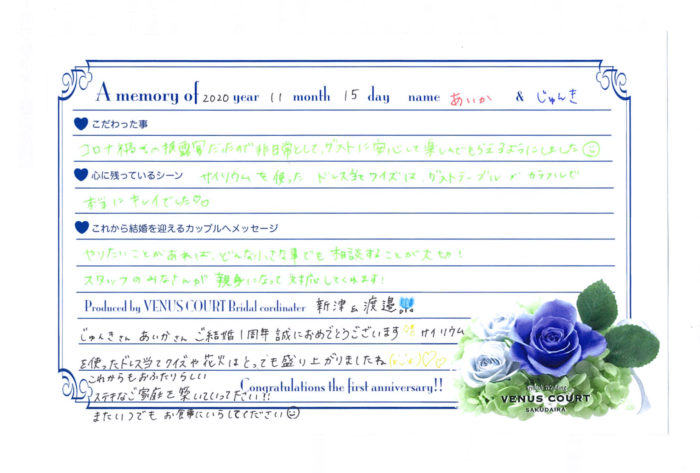 A memory of 2020 year 11 month 15 day name あいか & じゅんき
こだわった事
コロナ禍での披露宴だったが非日常として、ゲストに安心して楽しんでもらえるようにしました
心に残っているシーン サイリウムを使った ドレス当てクイズは、ゲストテーブルが カラフルで
本当にキレイでした♡♡
これから結婚を迎えるカップルへメッセージ
やりたいことがあれば、どんな小さな事でも 相談することが大切!
スタッフのみなさんが 親身になって 対応してくれます!
Produced by VENUS COURT Bridal cordinater 新津 & 渡邉
じゅんきさん あいかさん ご結婚1周年誠におめでとうございます サイリウム
を使ったドレス当てクイズや花火はとっても盛り上がりましたね
これからもおふたりらしい
ステキなご家庭を築いていって下さい!!
Congratulations the first anniversary!!
またいつでも お食事にいらしてください
VENUS COURT
SAKUDAIRA